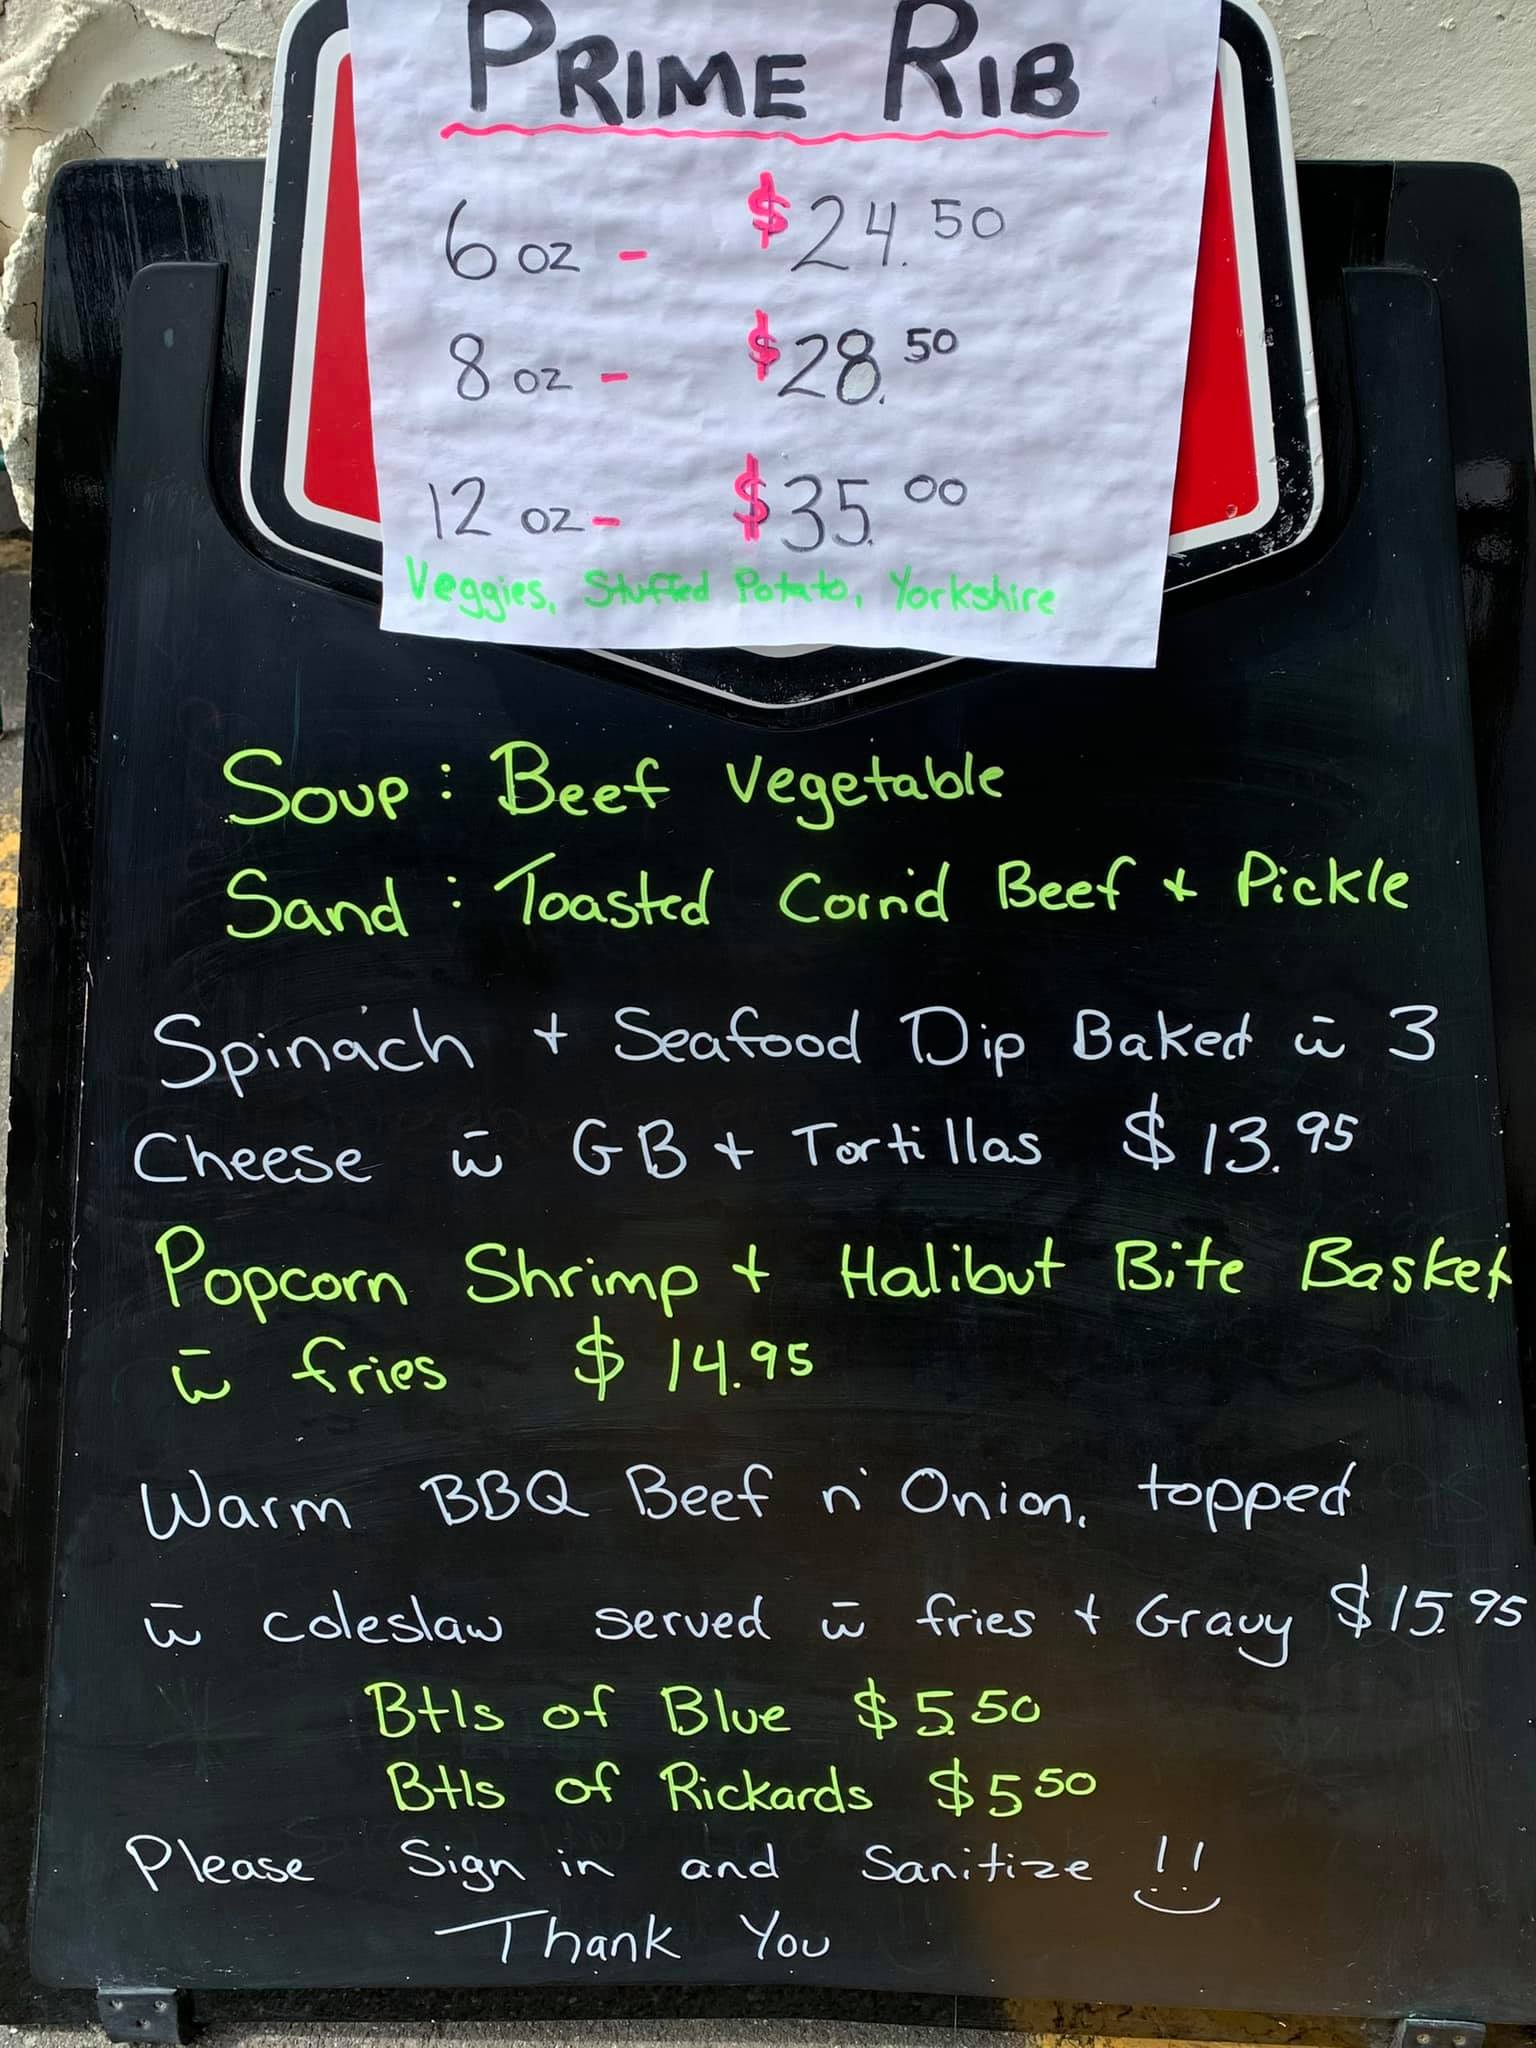 PRIME RIB
6 oz - $24.50
8 oz - $28.50
12 oz - $35.00
Veggies, Stuffed Potato, Yorkshire
Soup: Beef Vegetable
Sand: Toasted Corn'd Beef + Pickle
Spinach + Seafood Dip Baked w̄ 3
Cheese w̄ GB + Tortillas $13.95
Popcorn Shrimp + Halibut Bite Basket
w̄ fries $14.95
Warm BBQ Beef n' Onion, topped
w̄ coleslaw served w̄ fries + Gravy $15.95
Btls of Blue $5.50
Btls of Rickards $5 50
Please Sign in and Sanitize !!
Thank You